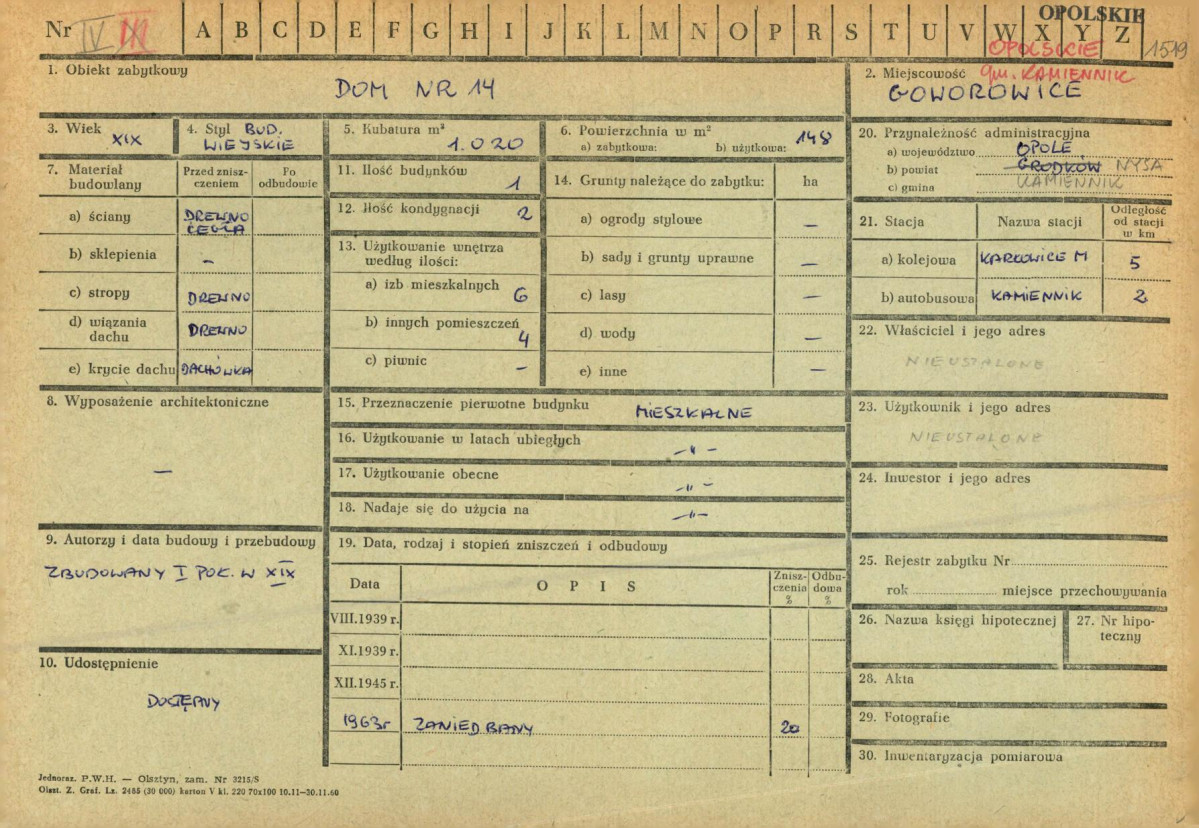 Nr IV III A B C D E F G H I J K L M N O P R S T U V W X Y Z OPOLSKIE 1519
OPOLSKIE
gm. KAMIENNIK
1. Obiekt zabytkowy
DOM NR 14
2. Miejscowość
GOWOROWICE
3. Wiek
XIX
4. Styl BUD.
WIEJSKIE
5. Kubatura m³
1.020
6. Powierzchnia w m²
a) zabytkowa: b) użytkowa: 148
7. Materiał
budowlany
Przed znisz-
czeniem
Po
odbudowie
a) ściany DREWNO
CEGŁA
b) sklepienia –
c) stropy DREWNO
d) wiązania
dachu DREWNO
e) krycie dachu DACHÓWKA
8. Wyposażenie architektoniczne
—
9. Autorzy i data budowy i przebudowy
ZBUDOWANY I POŁ. W XIX
10. Udostępnienie
DOSTĘPNY
11. Ilość budynków
1
12. Ilość kondygnacji 2
13. Użytkowanie wnętrza
według ilości:
a) izb mieszkalnych
6
b) innych pomieszczeń
4
c) piwnic –
14. Grunty należące do zabytku: ha
a) ogrody stylowe –
b) sady i grunty uprawne –
c) lasy –
d) wody –
e) inne –
15. Przeznaczenie pierwotne budynku MIESZKALNE
16. Użytkowanie w latach ubiegłych
–"–
17. Użytkowanie obecne
–"–
18. Nadaje się do użycia na –"–
19. Data, rodzaj i stopień zniszczeń i odbudowy
Data O P I S Znisz-
czenia
%
Odbu-
dowa
%
VIII.1939 r.
XI.1939 r.
XII.1945 r.
1963r ZANIEDBANY 20
20. Przynależność administracyjna
a) województwo OPOLE
b) powiat GRODKÓW NYSA
c) gmina KAMIENNIK
21. Stacja Nazwa stacji Odległość
od stacji
w km
a) kolejowa KARŁOWICE M 5
b) autobusowa KAMIENNIK 2
22. Właściciel i jego adres
NIEUSTALONE
23. Użytkownik i jego adres
NIEUSTALONE
24. Inwestor i jego adres
25. Rejestr zabytku Nr
rok miejsce przechowywania
26. Nazwa księgi hipotecznej
27. Nr hipo-
teczny
28. Akta
29. Fotografie
30. Inwentaryzacja pomiarowa
Jednoraz. P.W.H. — Olsztyn, zam. Nr 3215/S
Olszt. Z. Graf. Lz. 2485 (30 000) karton V kl. 220 70x100 10.11—30.11.60